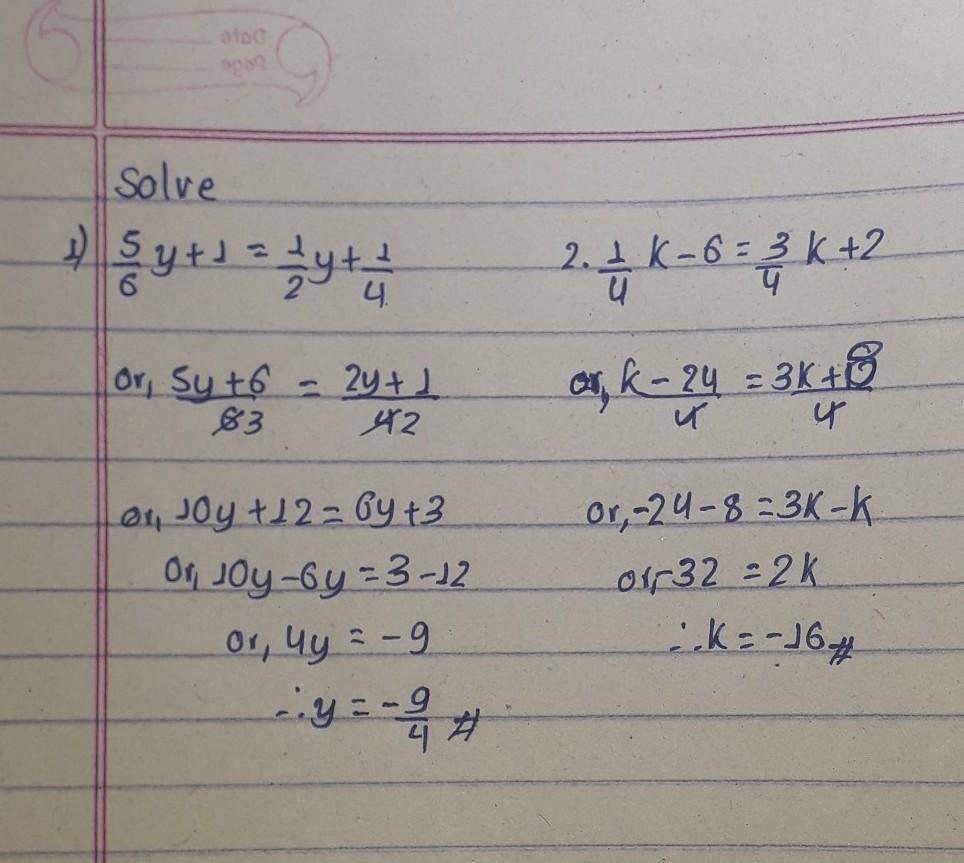 Date
Page
Solve
1) 5/6 y + 1 = 1/2 y + 1/4
or, 5y + 6 / 6 3 = 2y + 1 / 4 2
or, 10y + 12 = 6y + 3
or, 10y - 6y = 3 - 12
or, 4y = -9
∴ y = -9/4 #
2. 1/4 k - 6 = 3/4 k + 2
or, k - 24 / 4 = 3k + 8 / 4
or, -24 - 8 = 3k - k
or, -32 = 2k
∴ k = -16 #